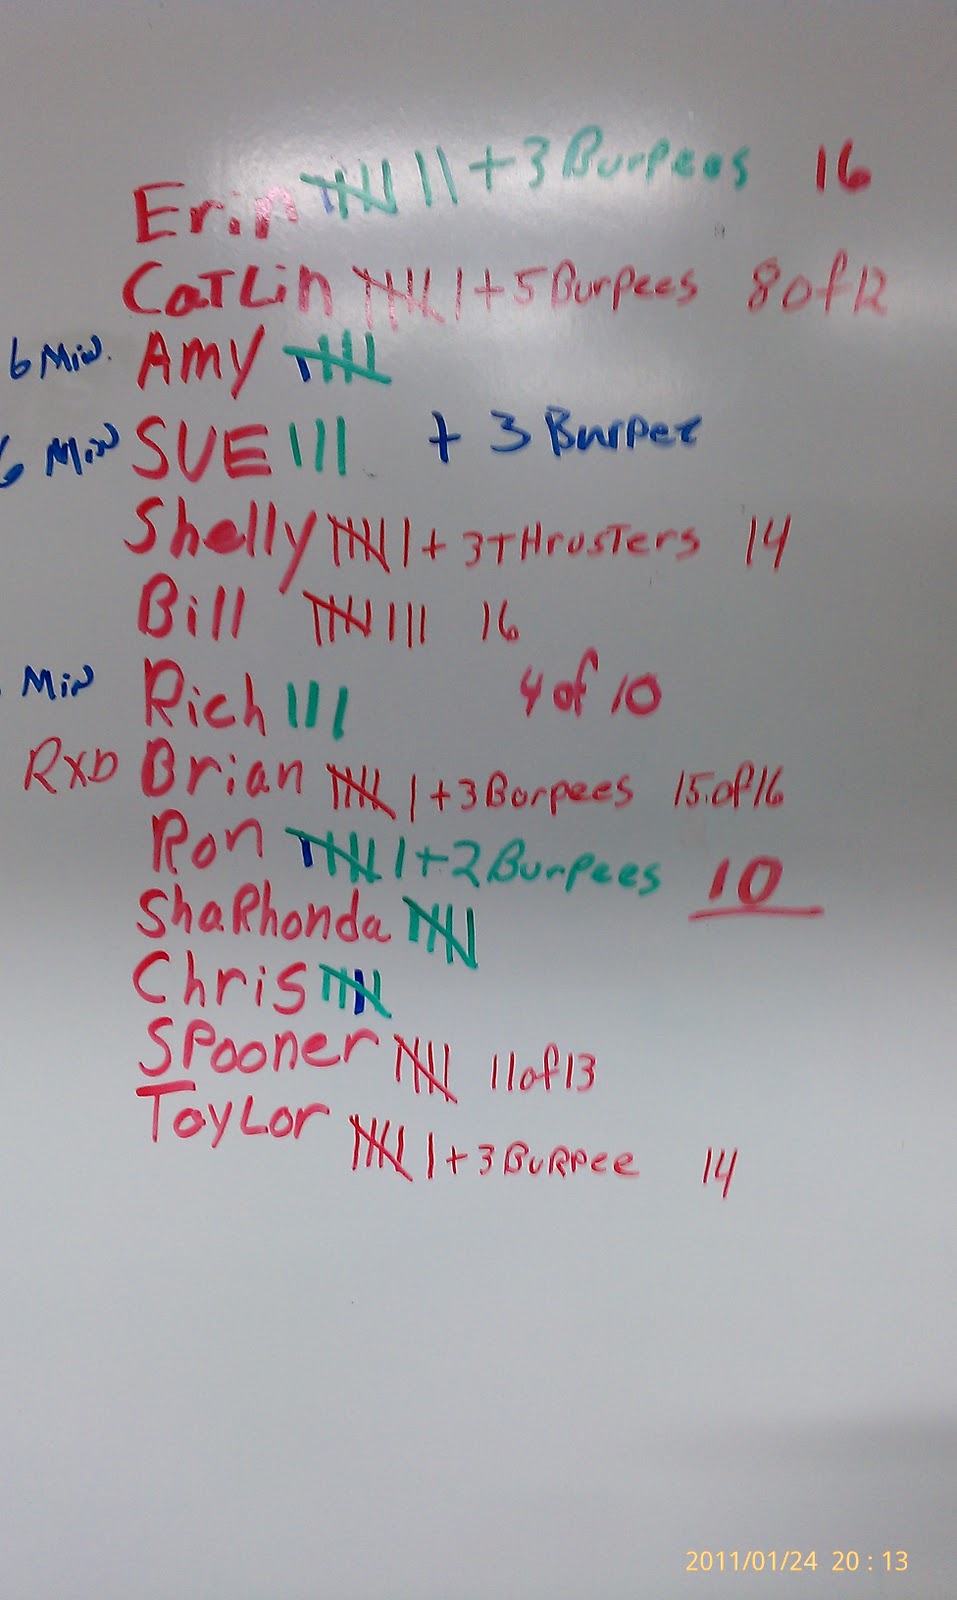 Erin 卌 || + 3 Burpees 16
CaTLin 卌 | + 5 Burpees 8 of 12
6 Min. Amy 卌
6 Min SUE ||| + 3 Burpee
Shelly 卌 | + 3 THrusTers 14
Bill 卌 ||| 16
Min Rich ||| 4 of 10
RXD Brian 卌 | + 3 Borpees 15 of 16
Ron 卌 | + 2 Burpees 10
ShaRhonda 卌
Chris 卌
SPooner 卌 11 of 13
TayLor 卌 | + 3 BuRPee 14
2011/01/24 20:13